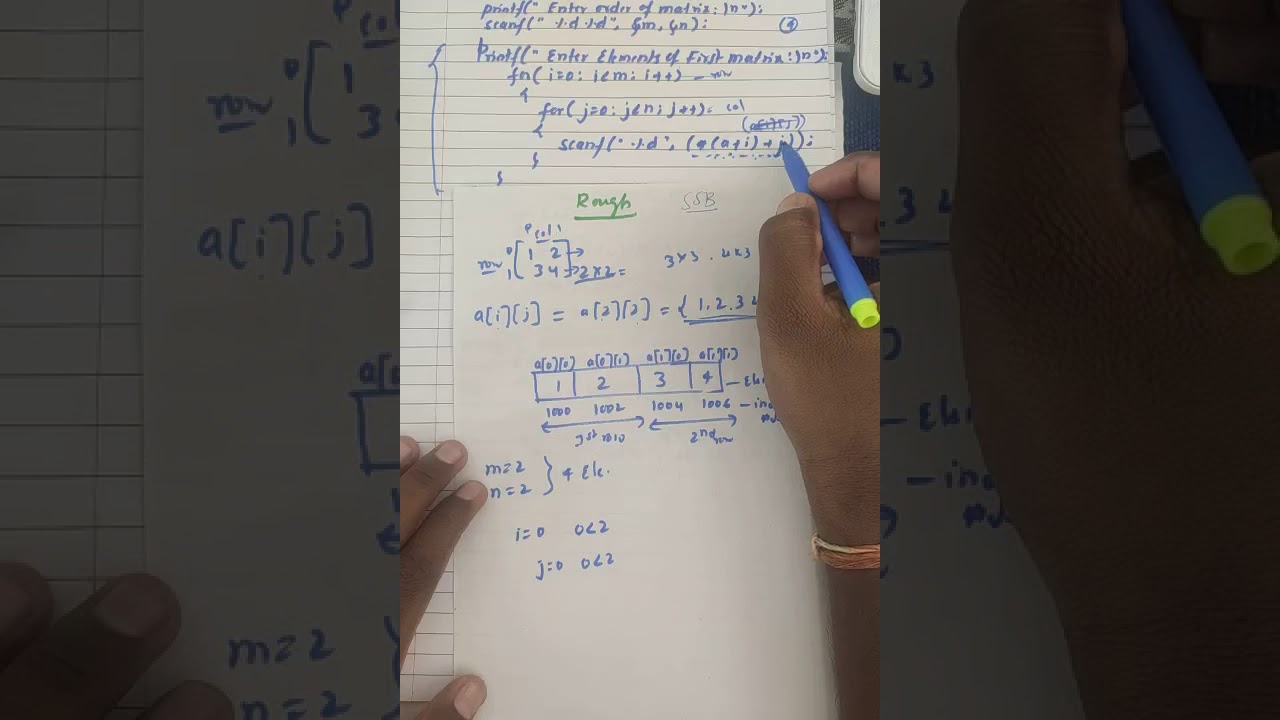 printf(" Enter order of matrix: \n");
scanf(" %d %d", &m, &n);
printf(" Enter Elements of First matrix: \n");
for( i=0; i<m; i++) - row
{
for( j=0; j<n; j++) col
{
(a[i][j])
scanf(" %d", (*(a+i)+j));
}
}
Rough SSB
col 1
row 0 [ 1 2 ] →
1 3 4 → 2×2 = 3×3 . 4×3
a[i][j] = a[2][2] = { 1,2,3 4
a[0][0] a[0][1] a[1][0] a[1][1]
1 2 3 4
1000 1002 1004 1006
1st row 2nd row
m=2
n=2 } 4 Ele.
i=0 0<2
j=0 0<2